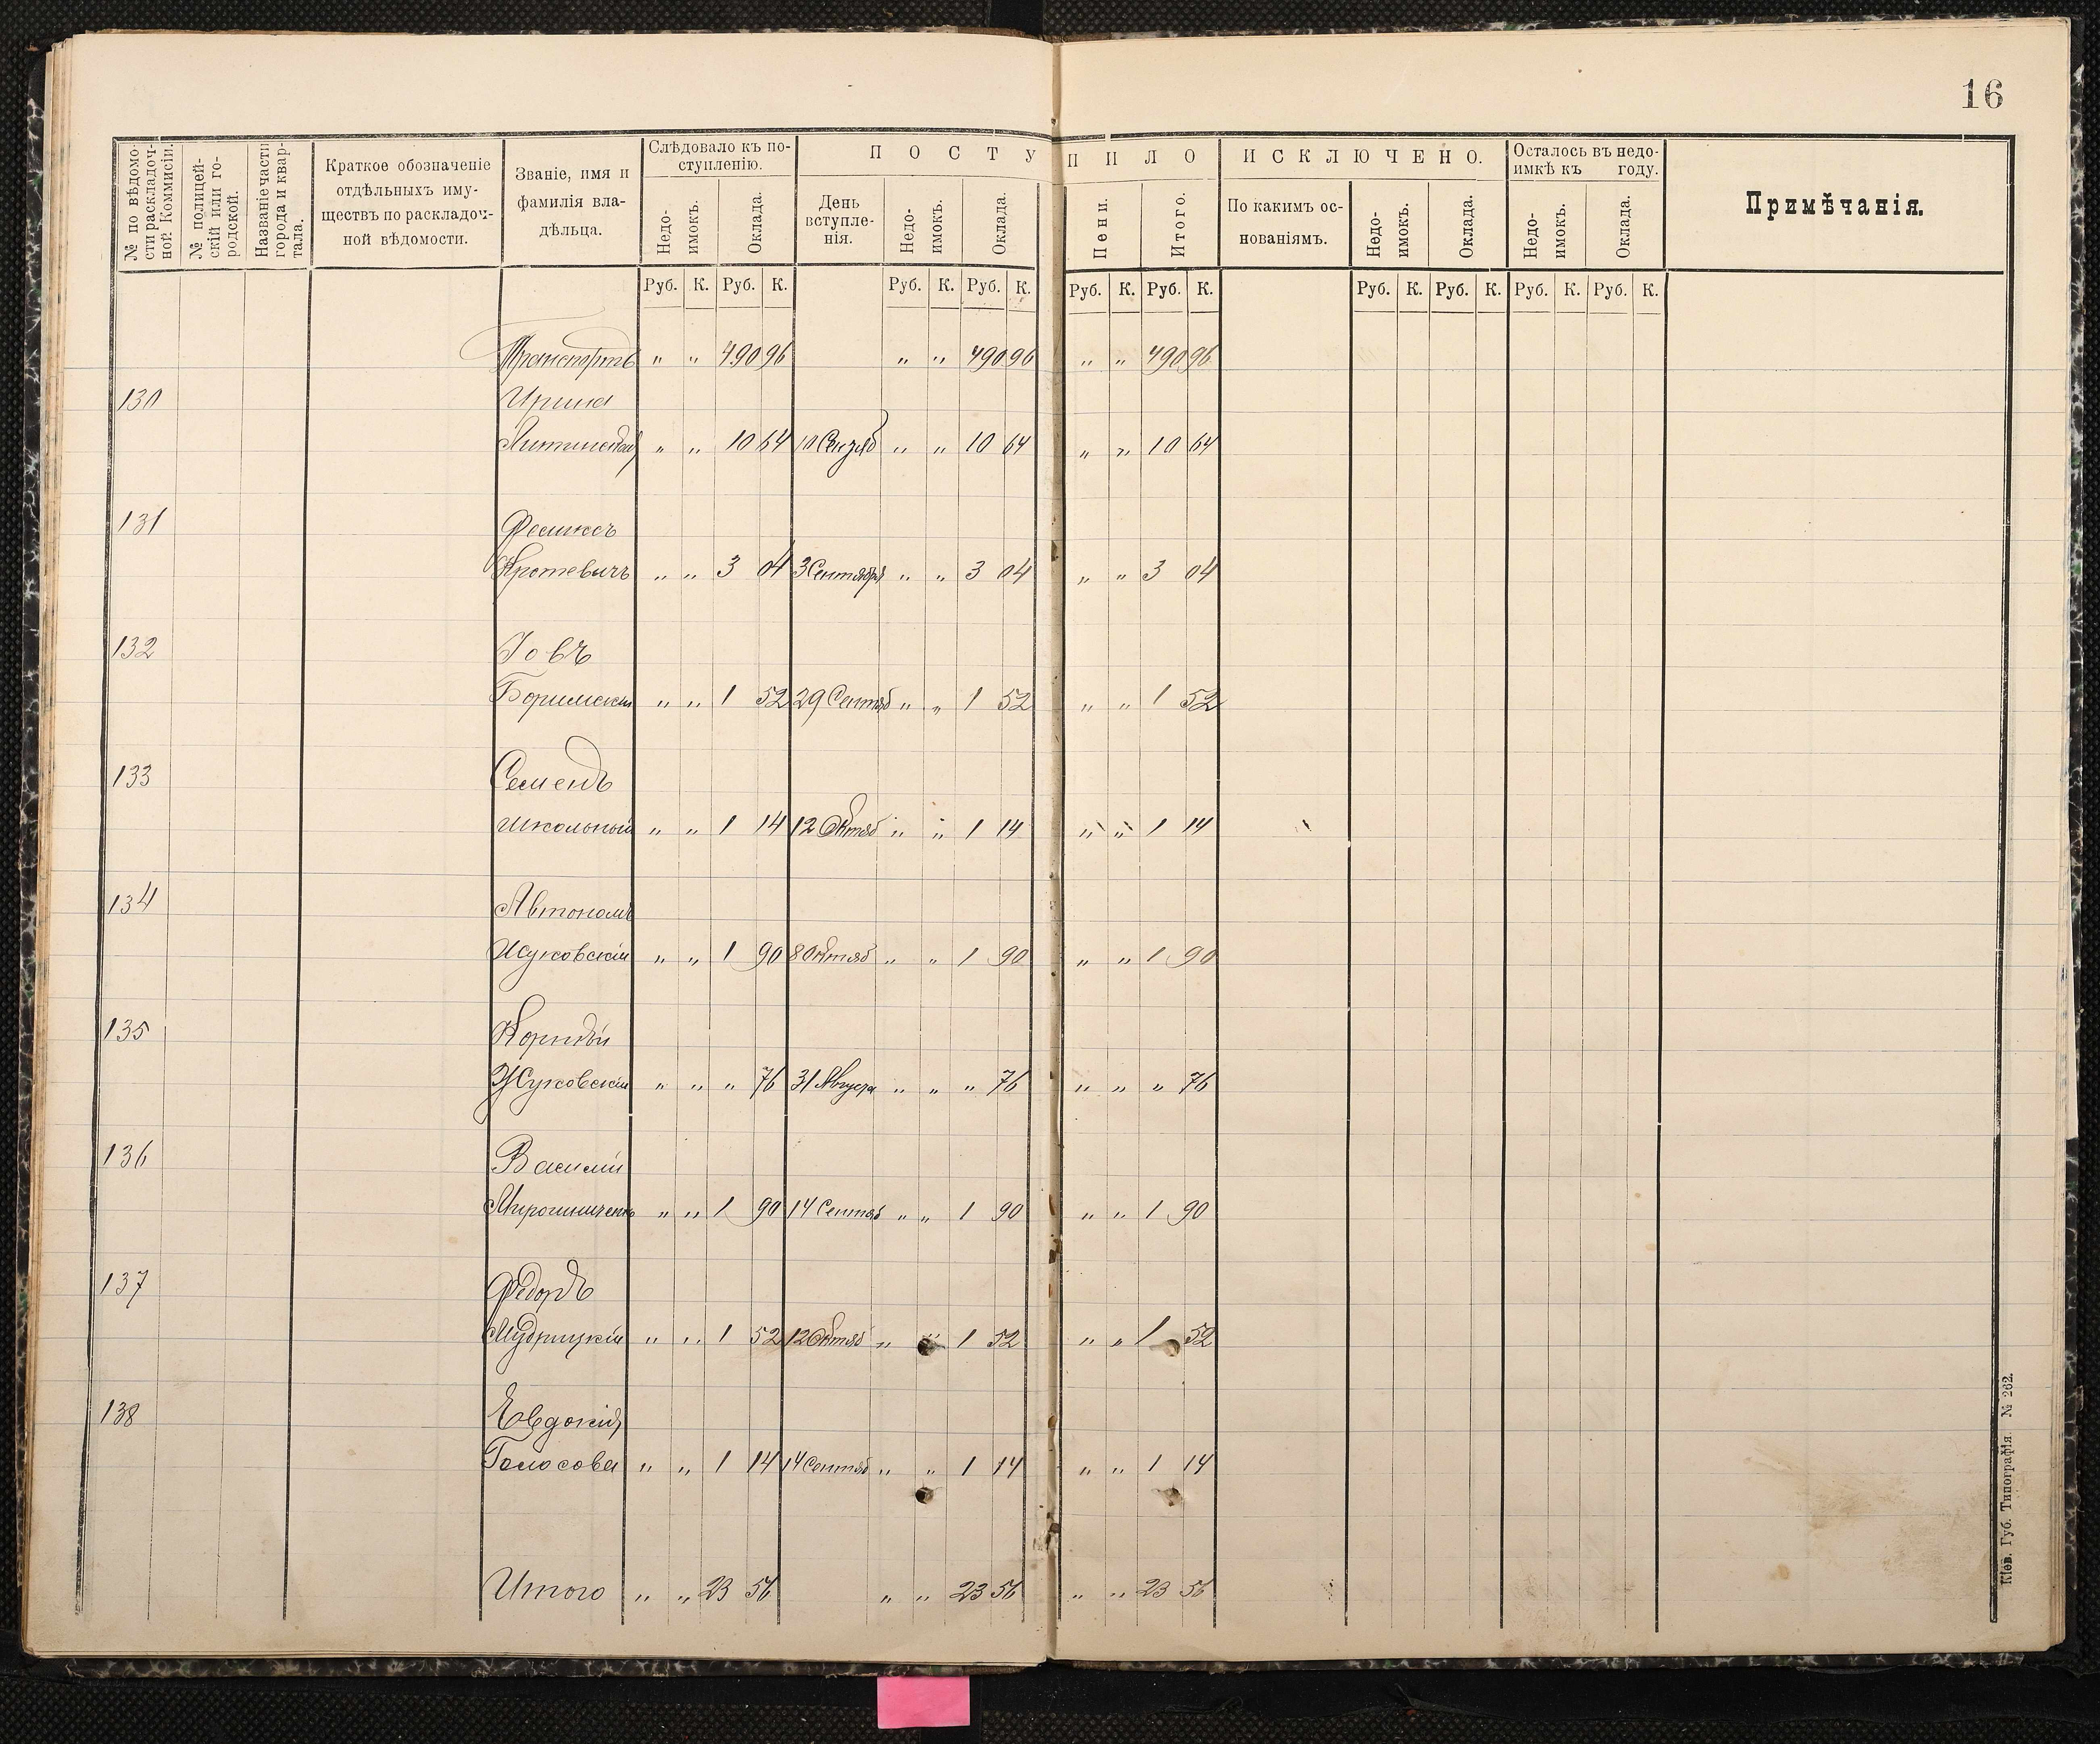 16
№ по вѣдомо-
сти раскладоч-
ной Коммисіи.
№ полицей-
скій или го-
родской.
Названіе части
города и квар-
тала.
Краткое обозначеніе
отдѣльныхъ иму-
ществъ по раскладоч-
ной вѣдомости.
Званіе, имя и
фамилія вла-
дѣльца.
Слѣдовало къ по-
ступленію.
Недо-
имокъ.
Оклада.
ПОСТУПИЛО
День
вступле-
нія.
Недо-
имокъ.
Оклада.
Пени.
Итого.
ИСКЛЮЧЕНО.
По какимъ ос-
нованіямъ.
Недо-
имокъ.
Оклада.
Осталось въ недо-
имкѣ къ году.
Недо-
имокъ.
Оклада.
Примѣчанія.
Руб. К. Руб. К. Руб. К. Руб. К. Руб. К. Руб. К. Руб. К. Руб. К. Руб. К. Руб. К.
Транспортъ " " 490 96 " " 490 96 " " 490 96
130 Ирина
" " 10 64 10 Сентяб " " 10 64 " " 10 64
131 Феликсъ
Кротевичъ " " 3 04 3 Сентября " " 3 04 " " 3 04
132 Іовъ
" " 1 52 29 Сентяб " " 1 52 " " 1 52
133 Семенъ
Школьный " " 1 14 12 Октяб " " 1 14 " " 1 14
134 Автономъ
Жуковскій " " 1 90 8 Октяб " " 1 90 " " 1 90
135 Корнѣй
Жуковскій " " " 76 31 Августа " " " 76 " " " 76
136 Василій
Мирошниченко " " 1 90 14 Сентяб " " 1 90 " " 1 90
137 Федоръ
Мудрицкій " " 1 52 12 Октяб " " 1 52 " " 1 52
138 Евдокія
Голосова " " 1 14 14 Сентяб " " 1 14 " " 1 14
Итого " " 23 56 " " 23 56 " " 23 56
Кіев. Губ. Типографія. № 262.